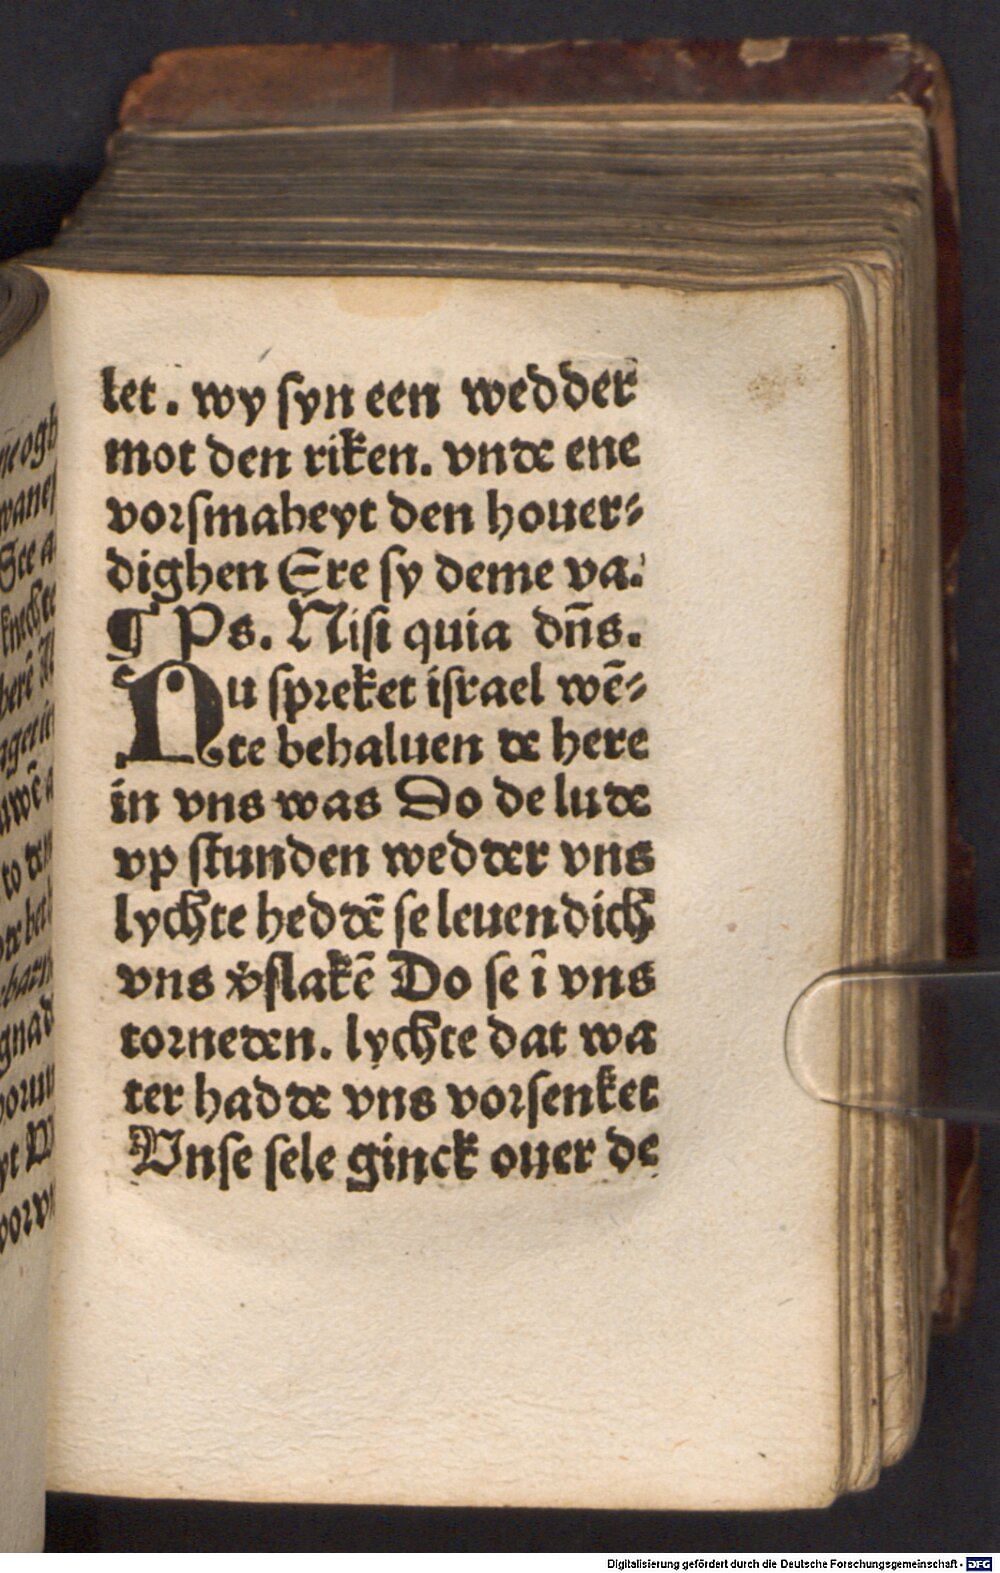 ket. wy syn een wedder
mot den riken. vnde ene
vorsmaheyt den houer⸗
dighen Ere sy deme va.
¶ Ps. Nisi quia dn̄s.
Nu spreket israel wē⸗
te behaluen de here
in vns was Do de lude
vp stunden wedder vns
lychte heddē se leuendich
vns v̄slakē Do se ī vns
torneden. lychte dat wa
ter hadde vns vorsenket
Vnse sele ginck ouer de
Digitalisierung gefördert durch die Deutsche Forschungsgemeinschaft - DFG